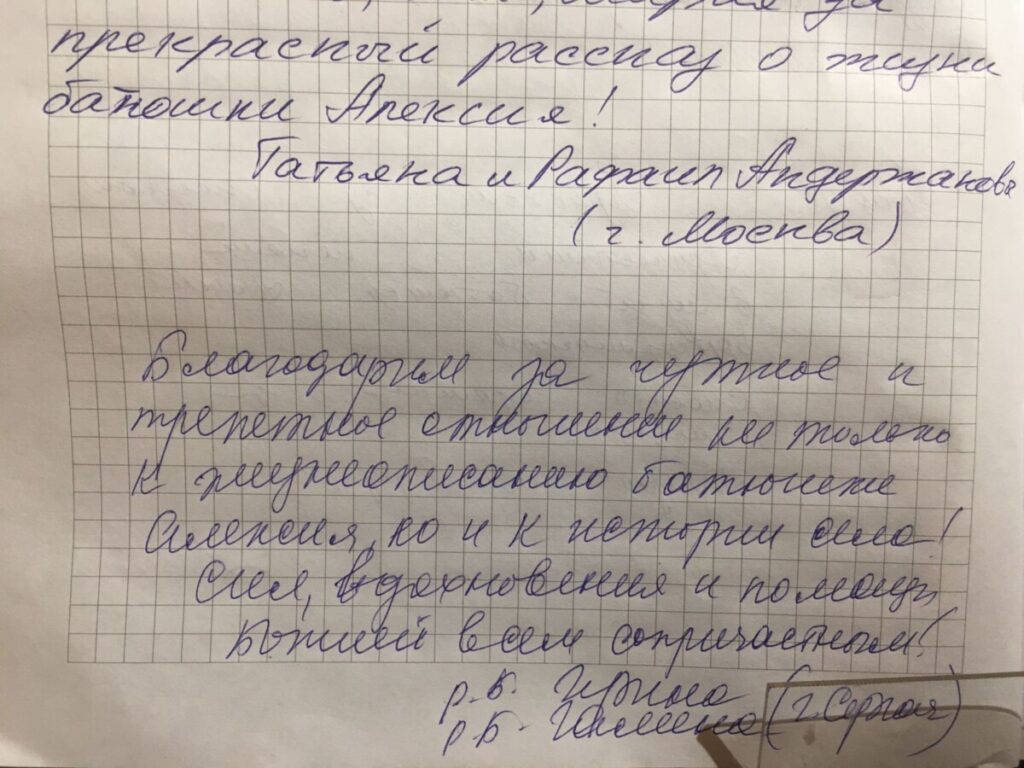 за
прекрасный рассказ о жизни
батюшки Алексия!
Татьяна и Рафаил Андержановы
(г. Москва)
Благодарим за чуткое и
трепетное отношение не только
к жизнеописанию батюшки
Алексия, но и к истории села!
Сил, вдохновения и помощи
Божией всем сопричастным!
р. Б. Ирина
р. Б. (г. Сергач)